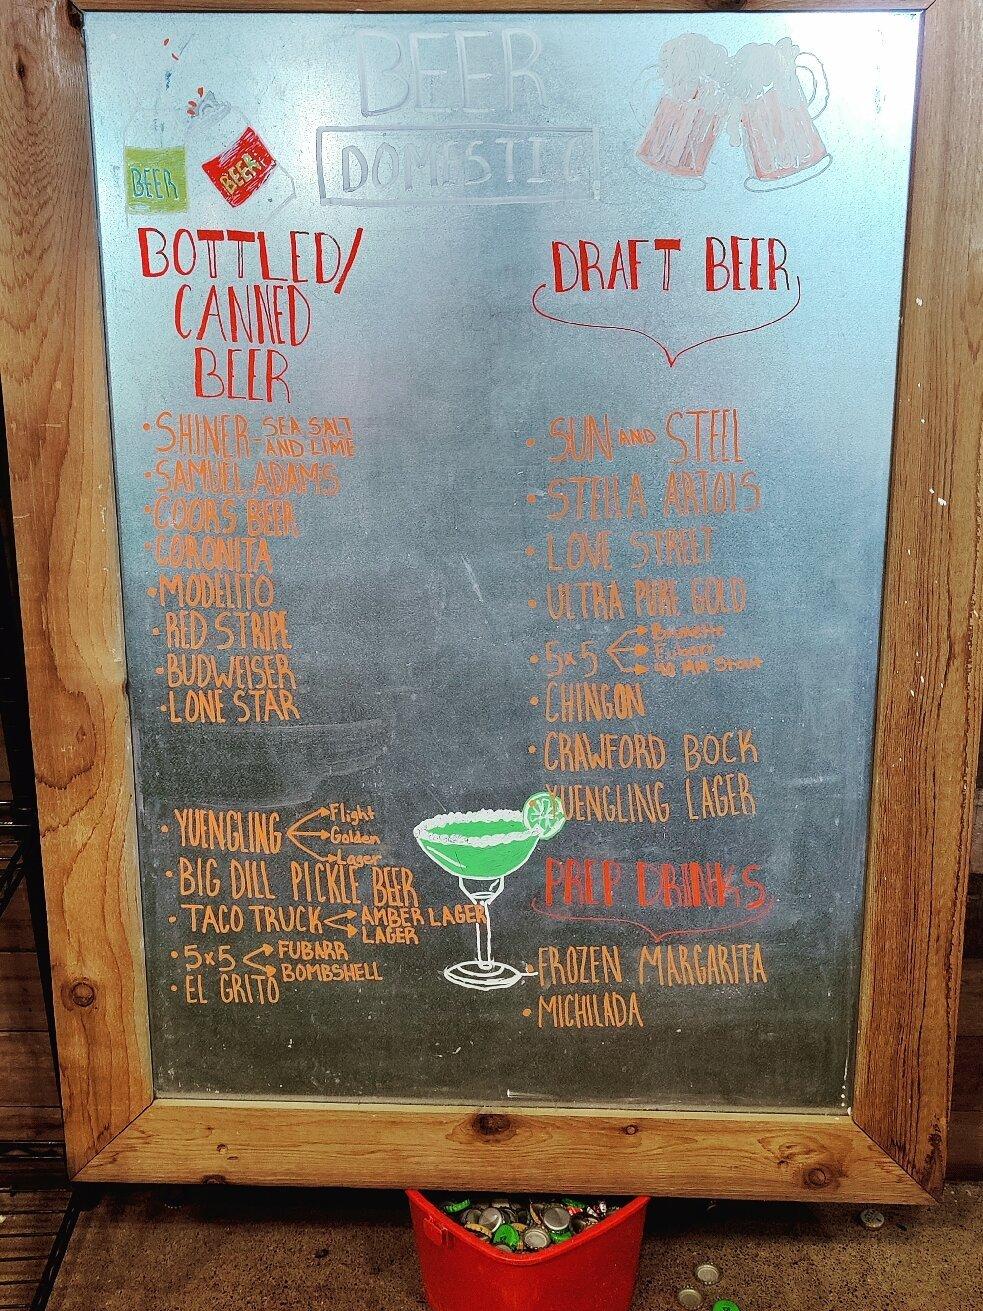 BEER
DOMESTIC
BEER
BEER
BOTTLED/
CANNED
BEER
• SHINER - SEA SALT
AND LIME
• SAMUEL ADAMS
• COORS BEER
• CORONITA
• MODELITO
• RED STRIPE
• BUDWEISER
• LONE STAR
• YUENGLING
Flight
Golden
Lager
• BIG DILL PICKLE BEER
• TACO TRUCK
AMBER LAGER
LAGER
• 5x5
FUBARR
BOMBSHELL
• EL GRITO
DRAFT BEER
• SUN AND STEEL
• STELLA ARTOIS
• LOVE STREET
• ULTRA PURE GOLD
• 5x5
Fubarr
Stout
• CHINGON
• CRAWFORD BOCK
YUENGLING LAGER
PREP DRINKS
• FROZEN MARGARITA
• MICHILADA